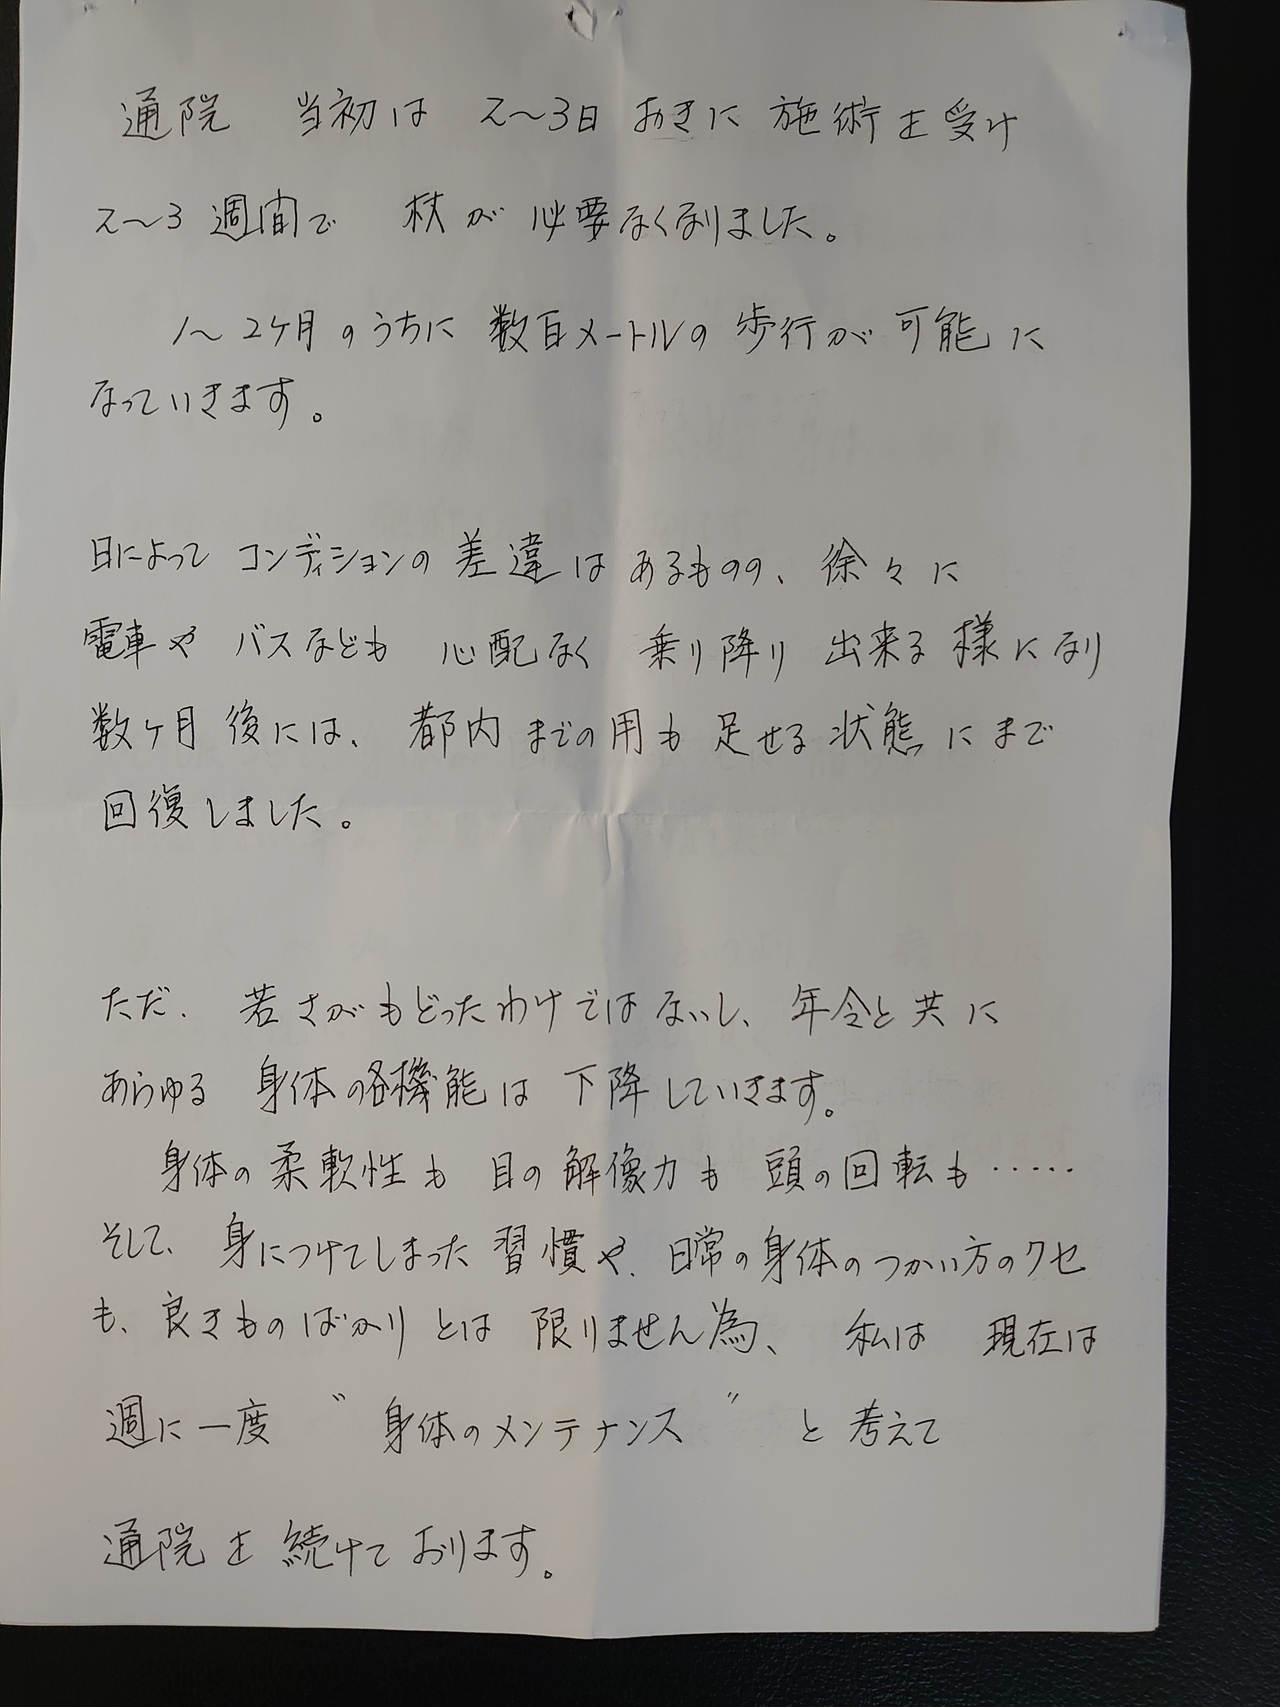 通院 当初は 2〜3日おきに 施術を受け
2〜3週間で 杖が 必要なくなりました。
1〜2ケ月のうちに 数百メートルの 歩行が 可能に
なっていきます。
日によって コンディションの 差違は あるものの、徐々に
電車や バスなども 心配なく 乗り降り 出来る 様になり
数ヶ月後には、都内までの用も 足せる 状態にまで
回復しました。
ただ、若さがもどったわけではないし、年令と共に
あらゆる 身体の各機能は 下降していきます。
身体の柔軟性も 目の解像力も 頭の回転も・・・・・
そして、身につけてしまった 習慣や、日常の身体のつかい方のクセ
も、良きものばかりとは 限りません為、 私は 現在は
週に一度 〝身体のメンテナンス〞 と考えて
通院を 続けて おります。